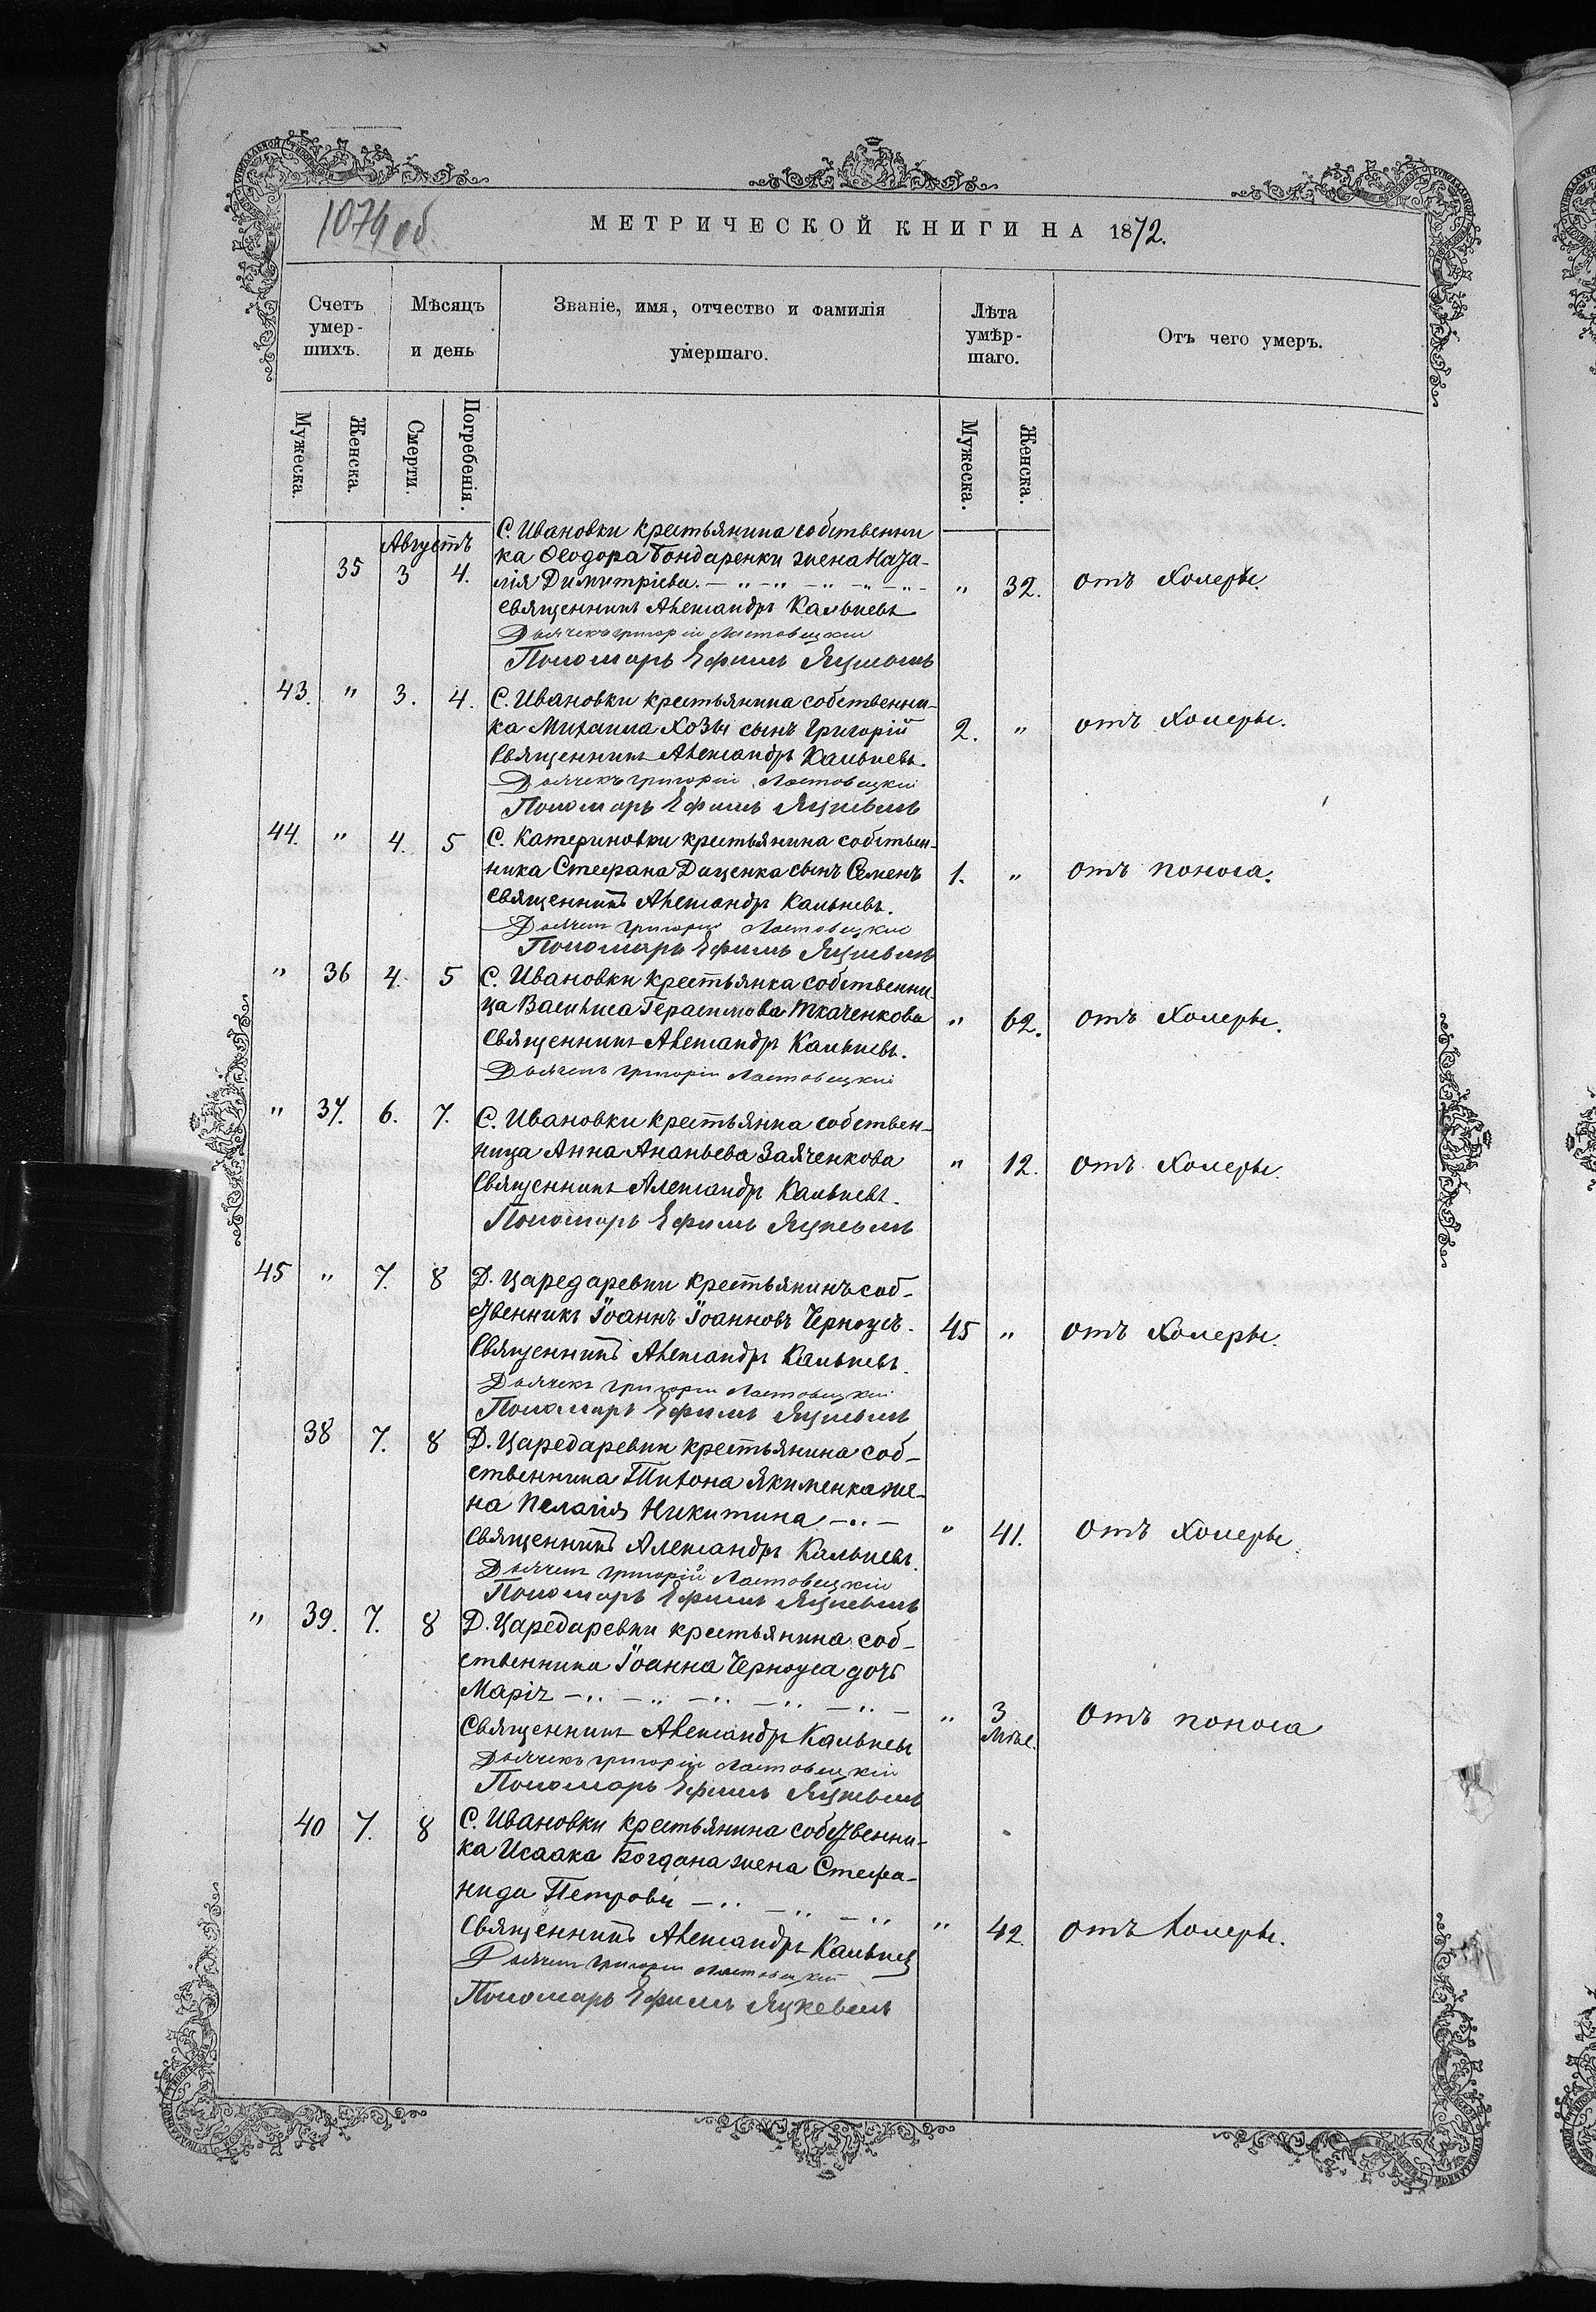 1074 об
МЕТРИЧЕСКОЙ КНИГИ НА 1872.
Счетъ умер-шихъ.
Мѣсяцъ и день
Званіе, имя, отчество и фамилія умершаго.
Лѣта умѣр-шаго.
Отъ чего умеръ.
Мужеска.
Женска.
Смерти.
Погребенія.
Мужеска.
Женска.
Августъ
С. Ивановки крестьянина собственни
ка Ѳеодора Бондаренки жена Ната-
35 3 4. лія Димитріева. „ 32. отъ холеры.
Священникъ Александръ
Дьячекъ Григорій Ластовецкій
Пономарь Ефимъ Яцкевичъ
43. „ 3. 4. С. Ивановки крестьянина собственни-
ка Михаила Хозы сынъ Григорій 2. „ отъ холеры.
Священникъ Александръ
Дьячекъ Григорій Ластовецкій
Пономарь Ефимъ Яцкевичъ
44. „ 4. 5 С. Катериновки крестьянина собствен-
ника Стефана Даценка сынъ Семенъ 1. „ отъ поноса.
Священникъ Александръ
Дьячекъ Григорій Ластовецкій
Пономарь Ефимъ Яцкевичъ
„ 36 4. 5 С. Ивановки крестьянка собственни-
ца Васильса Герасимова Ткаченкова „ 62. отъ холеры.
Священникъ Александръ
Дьячекъ Григорій Ластовецкій
„ 37. 6. 7. С. Ивановки крестьянка собствен-
ница Анна Ананьева Заяченкова „ 12. отъ холеры.
Священникъ Александръ
Пономарь Ефимъ Яцкевичъ
45 „ 7. 8 Д. Царедаревки крестьянинъ соб-
ственникъ Іоаннъ Іоанновъ Черноусъ. 45 „ отъ холеры.
Священникъ Александръ
Дьячекъ Григорій Ластовецкій
Пономарь Ефимъ Яцкевичъ
38 7. 8 Д. Царедаревки крестьянина соб-
ственника Тихона Якименка же-
на Пелагія Никитина „ 41. отъ холеры
Священникъ Александръ
Дьячекъ Григорій Ластовецкій
Пономарь Ефимъ Яцкевичъ
„ 39. 7. 8 Д. Царедаревки крестьянина соб-
ственника Іоанна Черноуса дочь
Марія „ 3 отъ поноса
Священникъ Александръ
Дьячекъ Григорій Ластовецкій
Пономарь Ефимъ Яцкевичъ
40 7. 8 С. Ивановки крестьянина собственни-
ка Исаака Богдана жена Стефа-
нида Петрова „ 42. отъ холеры.
Священникъ Александръ
Дьячекъ Григорій Ластовецкій
Пономарь Ефимъ Яцкевичъ